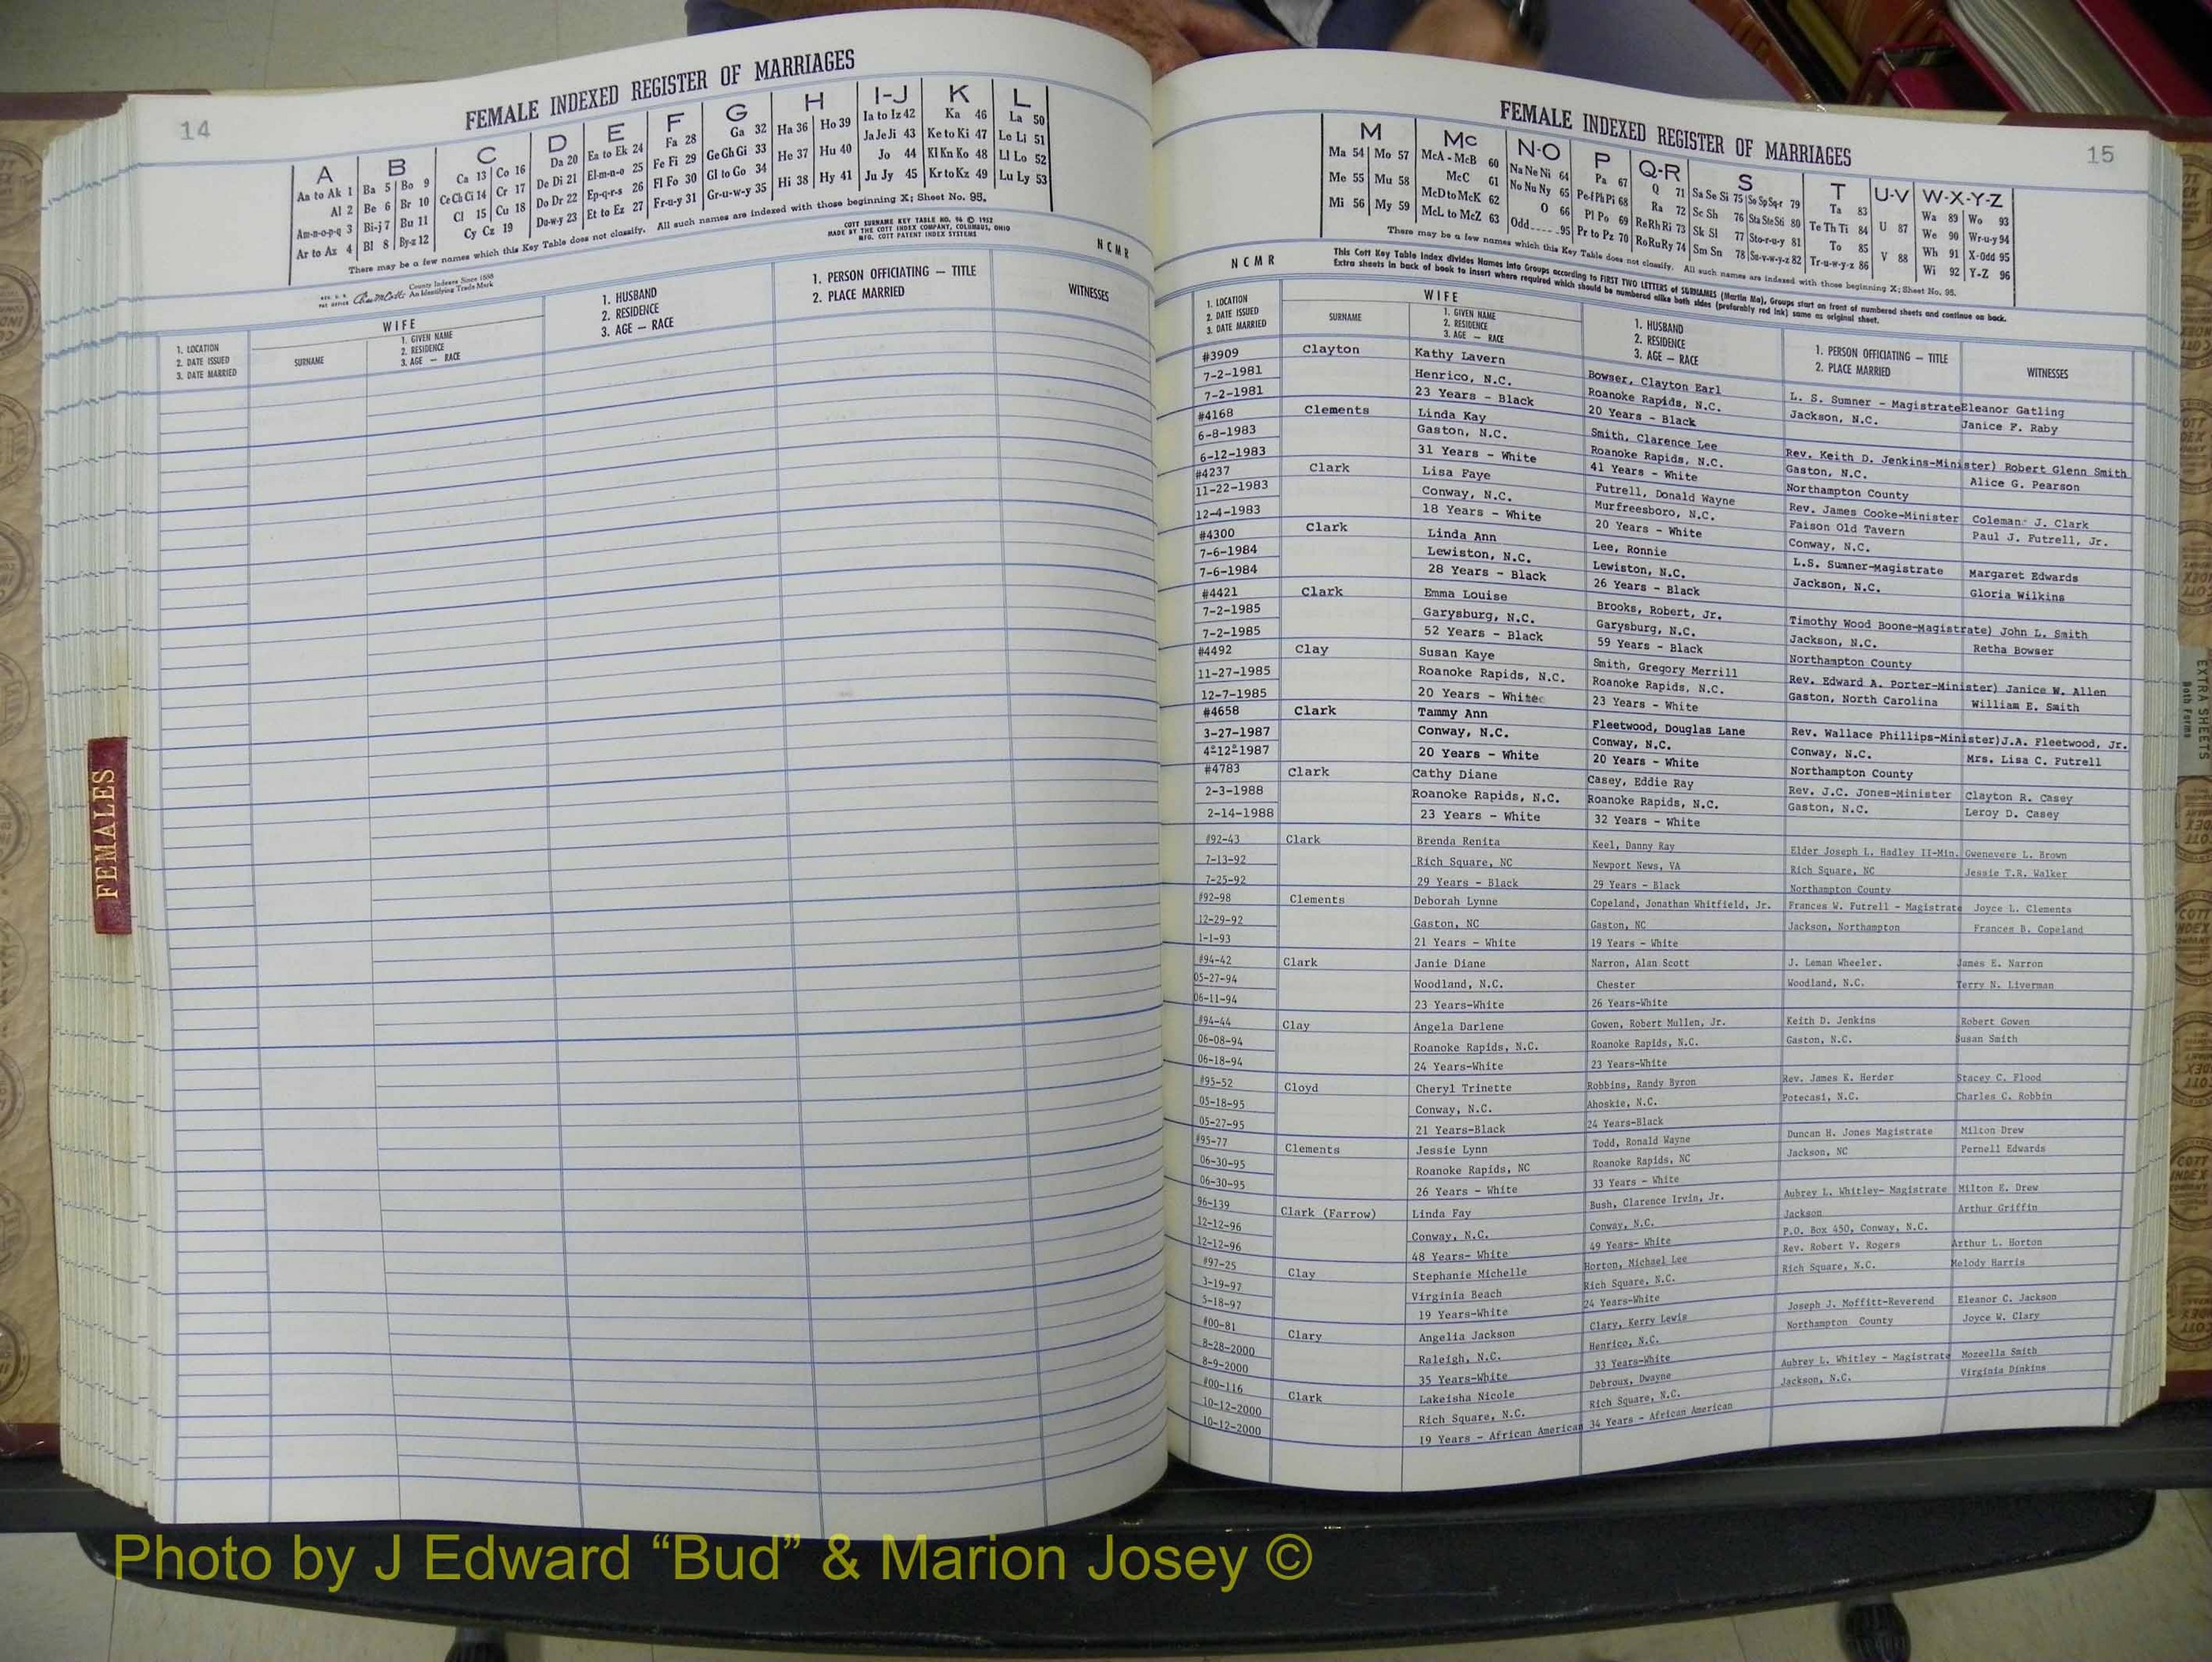 14
FEMALE INDEXED REGISTER OF MARRIAGES
A B C D E F G H I-J K L
Aa to Ak 1 Ba 5 Bo 9 Ca 13 Co 16 Da 20 Ea to Ek 24 Fa 28 Ga 32 Ha 36 Ho 39 Ia to Iz 42 Ka 46 La 50
Al 2 Be 6 Br 10 Ce Ch Ci 14 Cr 17 De Di 21 El-m-n-o 25 Fe Fi 29 Ge Gh Gi 33 He 37 Hu 40 Ja Je Ji 43 Ke to Ki 47 Le Li 51
Am-n-o-p-q 3 Bi-j 7 Bu 11 Cl 15 Cu 18 Do Dr 22 Ep-q-r-s 26 Fl Fo 30 Gl to Go 34 Hi 38 Hy 41 Jo 44 Kl Kn Ko 48 Ll Lo 52
Ar to Az 4 Bl 8 By-z 12 Cy Cz 19 Du-w-y 23 Et to Ez 27 Fr-u-y 31 Gr-u-w-y 35 Ju Jy 45 Kr to Kz 49 Lu Ly 53
There may be a few names which this Key Table does not classify. All such names are indexed with those beginning X; Sheet No. 95.
COTT SURNAME KEY TABLE NO. 96 © 1952
MADE BY THE COTT INDEX COMPANY, COLUMBUS, OHIO
MFG. COTT PATENT INDEX SYSTEMS
N C M R
County Indexes Since 1888
An Identifying Trade Mark
1. LOCATION
2. DATE ISSUED
3. DATE MARRIED
WIFE
SURNAME
1. GIVEN NAME
2. RESIDENCE
3. AGE — RACE
1. HUSBAND
2. RESIDENCE
3. AGE — RACE
1. PERSON OFFICIATING — TITLE
2. PLACE MARRIED
WITNESSES
FEMALES
15
FEMALE INDEXED REGISTER OF MARRIAGES
M Mc N-O P Q-R S T U-V W-X-Y-Z
Ma 54 Mo 57 McA - McB 60 Na Ne Ni 64 Pa 67 Q 71 Sa Se Si 75 So Sp Sq-r 79 Ta 83 U 87 Wa 89 Wo 93
Me 55 Mu 58 McC 61 No Nu Ny 65 Pe-f Ph Pi 68 Ra 72 Sc Sh 76 Sta Ste Sti 80 Te Th Ti 84 We 90 Wr-u-y 94
Mi 56 My 59 McD to McK 62 O 66 Pl Po 69 Re Rh Ri 73 Sk Sl 77 Sto-r-u-y 81 To 85 V 88 Wh 91 X-Odd 95
McL to McZ 63 Odd 95 Pr to Pz 70 Ro Ru Ry 74 Sm Sn 78 Su-v-w-y-z 82 Tr-u-w-y-z 86 Wi 92 Y-Z 96
There may be a few names which this Key Table does not classify. All such names are indexed with those beginning X; Sheet No. 95.
This Cott Key Table Index divides Names into Groups according to FIRST TWO LETTERS of SURNAMES (Martin Ma), Groups start on front of numbered sheets and continue on back.
Extra sheets in back of book to insert where required which should be numbered alike both sides (preferably red ink) same as original sheet.
N C M R
1. LOCATION
2. DATE ISSUED
3. DATE MARRIED
WIFE
SURNAME
1. GIVEN NAME
2. RESIDENCE
3. AGE — RACE
1. HUSBAND
2. RESIDENCE
3. AGE — RACE
1. PERSON OFFICIATING — TITLE
2. PLACE MARRIED
WITNESSES
#3909 Clayton Kathy Lavern Bowser, Clayton Earl L. S. Sumner - Magistrate Eleanor Gatling
7-2-1981 Henrico, N.C. Roanoke Rapids, N.C. Jackson, N.C. Janice F. Raby
7-2-1981 23 Years - Black 20 Years - Black
#4168 Clements Linda Kay Smith, Clarence Lee Rev. Keith D. Jenkins-Minister) Robert Glenn Smith
6-8-1983 Gaston, N.C. Roanoke Rapids, N.C. Gaston, N.C. Alice G. Pearson
6-12-1983 31 Years - White 41 Years - White Northampton County
#4237 Clark Lisa Faye Futrell, Donald Wayne Rev. James Cooke-Minister Coleman J. Clark
11-22-1983 Conway, N.C. Murfreesboro, N.C. Faison Old Tavern Paul J. Futrell, Jr.
12-4-1983 18 Years - White 20 Years - White Conway, N.C.
#4300 Clark Linda Ann Lee, Ronnie L.S. Sumner-Magistrate Margaret Edwards
7-6-1984 Lewiston, N.C. Lewiston, N.C. Jackson, N.C. Gloria Wilkins
7-6-1984 28 Years - Black 26 Years - Black
#4421 Clark Emma Louise Brooks, Robert, Jr. Timothy Wood Boone-Magistrate) John L. Smith
7-2-1985 Garysburg, N.C. Garysburg, N.C. Jackson, N.C. Retha Bowser
7-2-1985 52 Years - Black 59 Years - Black Northampton County
#4492 Clay Susan Kaye Smith, Gregory Merrill Rev. Edward A. Porter-Minister) Janice W. Allen
11-27-1985 Roanoke Rapids, N.C. Roanoke Rapids, N.C. Gaston, North Carolina William E. Smith
12-7-1985 20 Years - White 23 Years - White
#4658 Clark Tammy Ann Fleetwood, Douglas Lane Rev. Wallace Phillips-Minister)J.A. Fleetwood, Jr.
3-27-1987 Conway, N.C. Conway, N.C. Conway, N.C. Mrs. Lisa C. Futrell
4-12-1987 20 Years - White 20 Years - White Northampton County
#4783 Clark Cathy Diane Casey, Eddie Ray Rev. J.C. Jones-Minister Clayton R. Casey
2-3-1988 Roanoke Rapids, N.C. Roanoke Rapids, N.C. Gaston, N.C. Leroy D. Casey
2-14-1988 23 Years - White 32 Years - White
#92-43 Clark Brenda Renita Keel, Danny Ray Elder Joseph L. Hadley II-Min. Gwenevere L. Brown
7-13-92 Rich Square, NC Newport News, VA Rich Square, NC Jessie T.R. Walker
7-25-92 29 Years - Black 29 Years - Black Northampton County
#92-98 Clements Deborah Lynne Copeland, Jonathan Whitfield, Jr. Frances W. Futrell - Magistrate Joyce L. Clements
12-29-92 Gaston, NC Gaston, NC Jackson, Northampton Frances B. Copeland
1-1-93 21 Years - White 19 Years - White
#94-42 Clark Janie Diane Narron, Alan Scott J. Leman Wheeler. James E. Narron
05-27-94 Woodland, N.C. Chester Woodland, N.C. Terry N. Liverman
06-11-94 23 Years-White 26 Years-White
#94-44 Clay Angela Darlene Gowen, Robert Mullen, Jr. Keith D. Jenkins Robert Gowen
06-08-94 Roanoke Rapids, N.C. Roanoke Rapids, N.C. Gaston, N.C. Susan Smith
06-18-94 24 Years-White 23 Years-White
#95-52 Cloyd Cheryl Trinette Robbins, Randy Byron Rev. James K. Herder Stacey C. Flood
05-18-95 Conway, N.C. Ahoskie, N.C. Potecasi, N.C. Charles C. Robbin
05-27-95 21 Years-Black 24 Years-Black
#95-77 Clements Jessie Lynn Todd, Ronald Wayne Duncan H. Jones Magistrate Milton Drew
06-30-95 Roanoke Rapids, NC Roanoke Rapids, NC Jackson, NC Pernell Edwards
06-30-95 26 Years - White 33 Years - White
96-139 Clark (Farrow) Linda Fay Bush, Clarence Irvin, Jr. Aubrey L. Whitley- Magistrate Milton E. Drew
12-12-96 Conway, N.C. Conway, N.C. Jackson Arthur Griffin
12-12-96 48 Years- White 49 Years- White P.O. Box 450, Conway, N.C.
#97-25 Clay Stephanie Michelle Horton, Michael Lee Rev. Robert V. Rogers Arthur L. Horton
3-19-97 Virginia Beach Rich Square, N.C. Rich Square, N.C. Melody Harris
5-18-97 19 Years-White 24 Years-White
#00-81 Clary Angelia Jackson Clary, Kerry Lewis Joseph J. Moffitt-Reverend Eleanor C. Jackson
8-28-2000 Raleigh, N.C. Henrico, N.C. Northampton County Joyce W. Clary
8-9-2000 35 Years-White 33 Years-White
#00-116 Clark Lakeisha Nicole Debroux, Dwayne Aubrey L. Whitley - Magistrate Mozeella Smith
10-12-2000 Rich Square, N.C. Rich Square, N.C. Jackson, N.C. Virginia Dinkins
10-12-2000 19 Years - African American 34 Years - African American
EXTRA SHEETS
Both Forms
Photo by J Edward “Bud” & Marion Josey ©